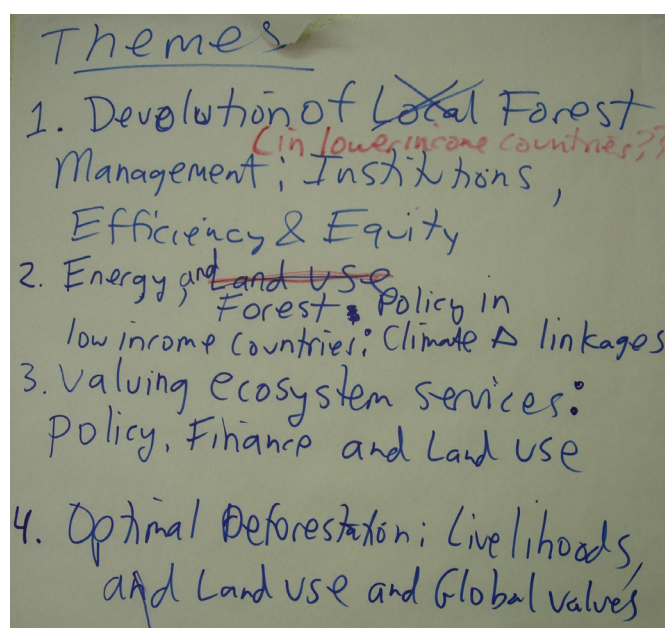 Themes
1. Devolution of Local Forest
(in lower income countries??
Management; Institutions,
Efficiency & Equity
2. Energy, and Land use
Forest Policy in
low income countries: Climate Δ linkages
3. Valuing ecosystem services:
Policy, Finance and Land use
4. Optimal Deforestation; Livelihoods,
and Land use and Global values